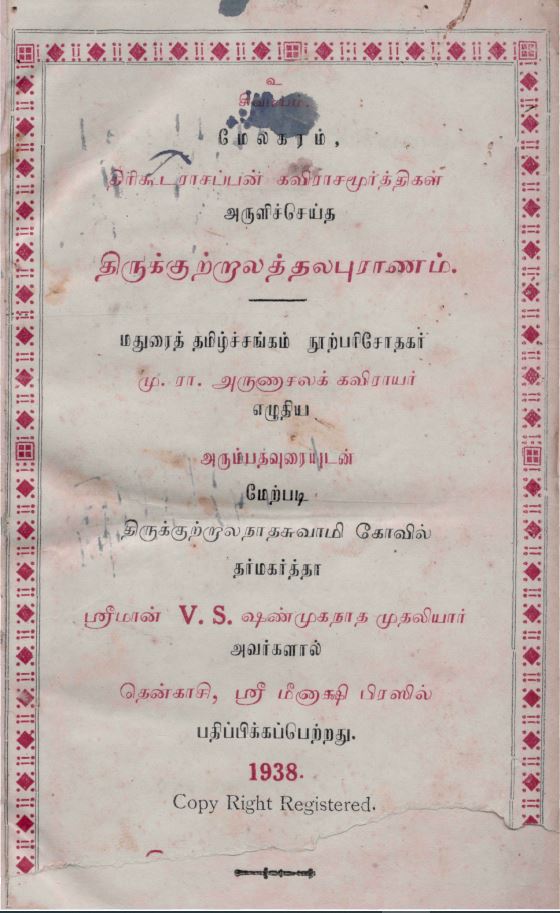 உ
சிவமயம்.
மேலகரம்,
திரிகூடராசப்பன் கவிராசமூர்த்திகள்
அருளிச்செய்த
திருக்குற்றாலத்தலபுராணம்.
மதுரைத் தமிழ்ச்சங்கம் நூற்பரிசோதகர்
மு. ரா. அருணாசலக் கவிராயர்
எழுதிய
அரும்பதவுரையுடன்
மேற்படி
திருக்குற்றாலநாதசுவாமி கோவில்
தர்மகர்த்தா
ஸ்ரீமான் V. S. ஷண்முகநாத முதலியார்
அவர்களால்
தென்காசி, ஸ்ரீ மீனாக்ஷி பிரஸில்
பதிப்பிக்கப்பெற்றது.
1938.
Copy Right Registered.